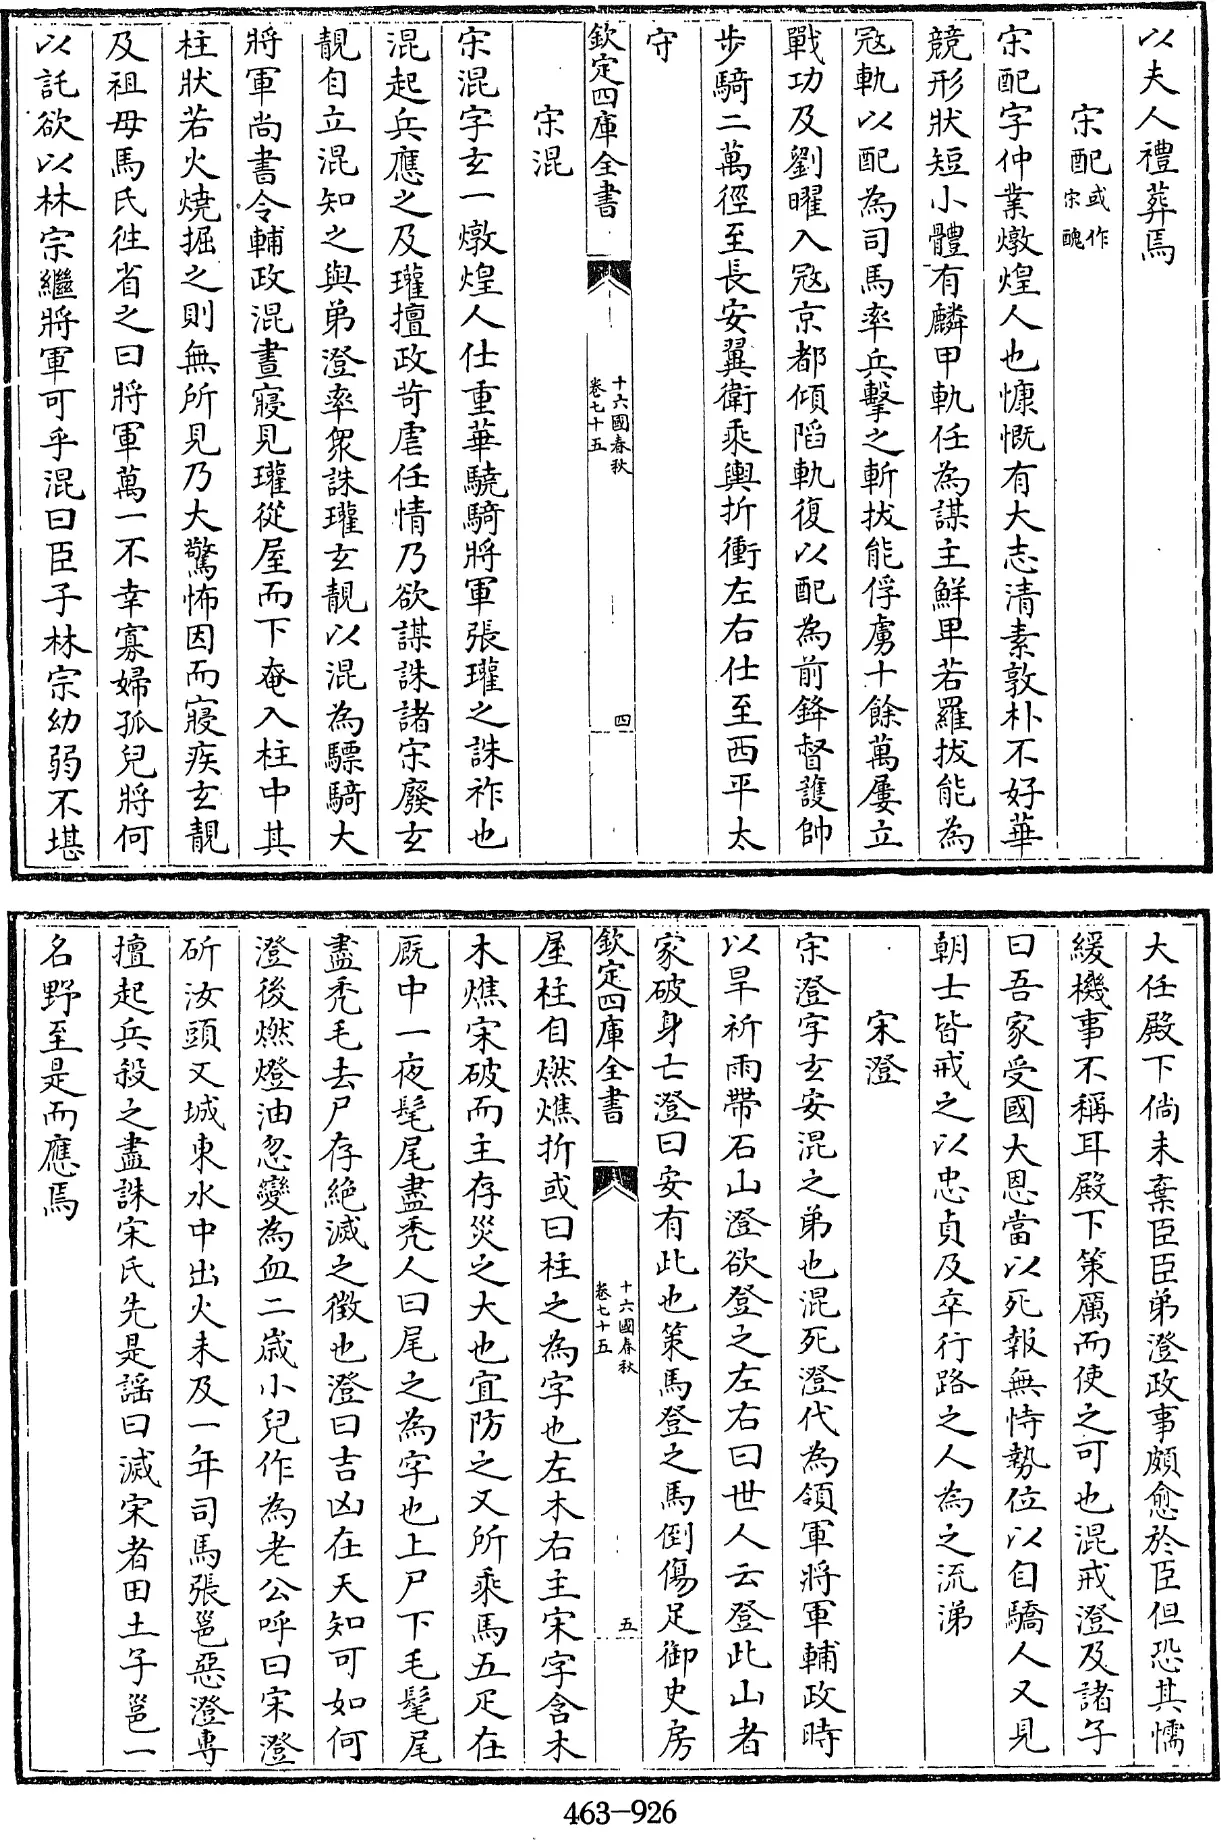 以夫人禮葬焉
宋配或作宋醜
宋配字仲業燉煌人也慷慨有大志清素敦朴不好華
競形狀短小體有麟甲軌任為謀主鮮卑若羅拔能為
寇軌以配為司馬率兵擊之斬拔能俘虜十餘萬屢立
戰功及劉曜入寇京都傾陷軌復以配為前鋒督護帥
步騎二萬徑至長安翼衛乘輿折衝左右仕至西平太
守
欽定四庫全書
十六國春秋
卷七十五
四
宋混
宋混字玄一燉煌人仕重華驍騎將軍張瓘之誅祚也
混起兵應之及瓘擅政苛虐任情乃欲謀誅諸宋廢玄
靚自立混知之與弟澄率衆誅瓘玄靚以混為驃騎大
將軍尚書令輔政混晝寢見瓘從屋而下奄入柱中其
柱狀若火燒掘之則無所見乃大驚怖因而寢疾玄靚
及祖母馬氏徃省之曰將軍萬一不幸寡婦孤兒將何
以託欲以林宗繼將軍可乎混曰臣子林宗幼弱不堪
大任殿下倘未棄臣臣弟澄政事頗愈於臣但恐其懦
緩機事不稱耳殿下策厲而使之可也混戒澄及諸子
曰吾家受國大恩當以死報無恃勢位以自驕人又見
朝士皆戒之以忠貞及卒行路之人為之流涕
宋澄
宋澄字玄安混之弟也混死澄代為領軍將軍輔政時
以旱祈雨帶石山澄欲登之左右曰世人云登此山者
家破身亡澄曰安有此也策馬登之馬倒傷足御史房
欽定四庫全書
十六國春秋
卷七十五
五
屋柱自燃燋折或曰柱之為字也左木右主宋字含木
木燋宋破而主存災之大也宜防之又所乘馬五疋在
厩中一夜髦尾盡秃人曰尾之為字也上尸下毛髦尾
盡秃毛去尸存絶滅之徵也澄曰吉凶在天知可如何
澄後燃燈油忽變為血二歲小兒作為老公呼曰宋澄
斫汝頭又城東水中出火未及一年司馬張邕惡澄專
擅起兵殺之盡誅宋氏先是謡曰滅宋者田土子邕一
名野至是而應焉
463-926